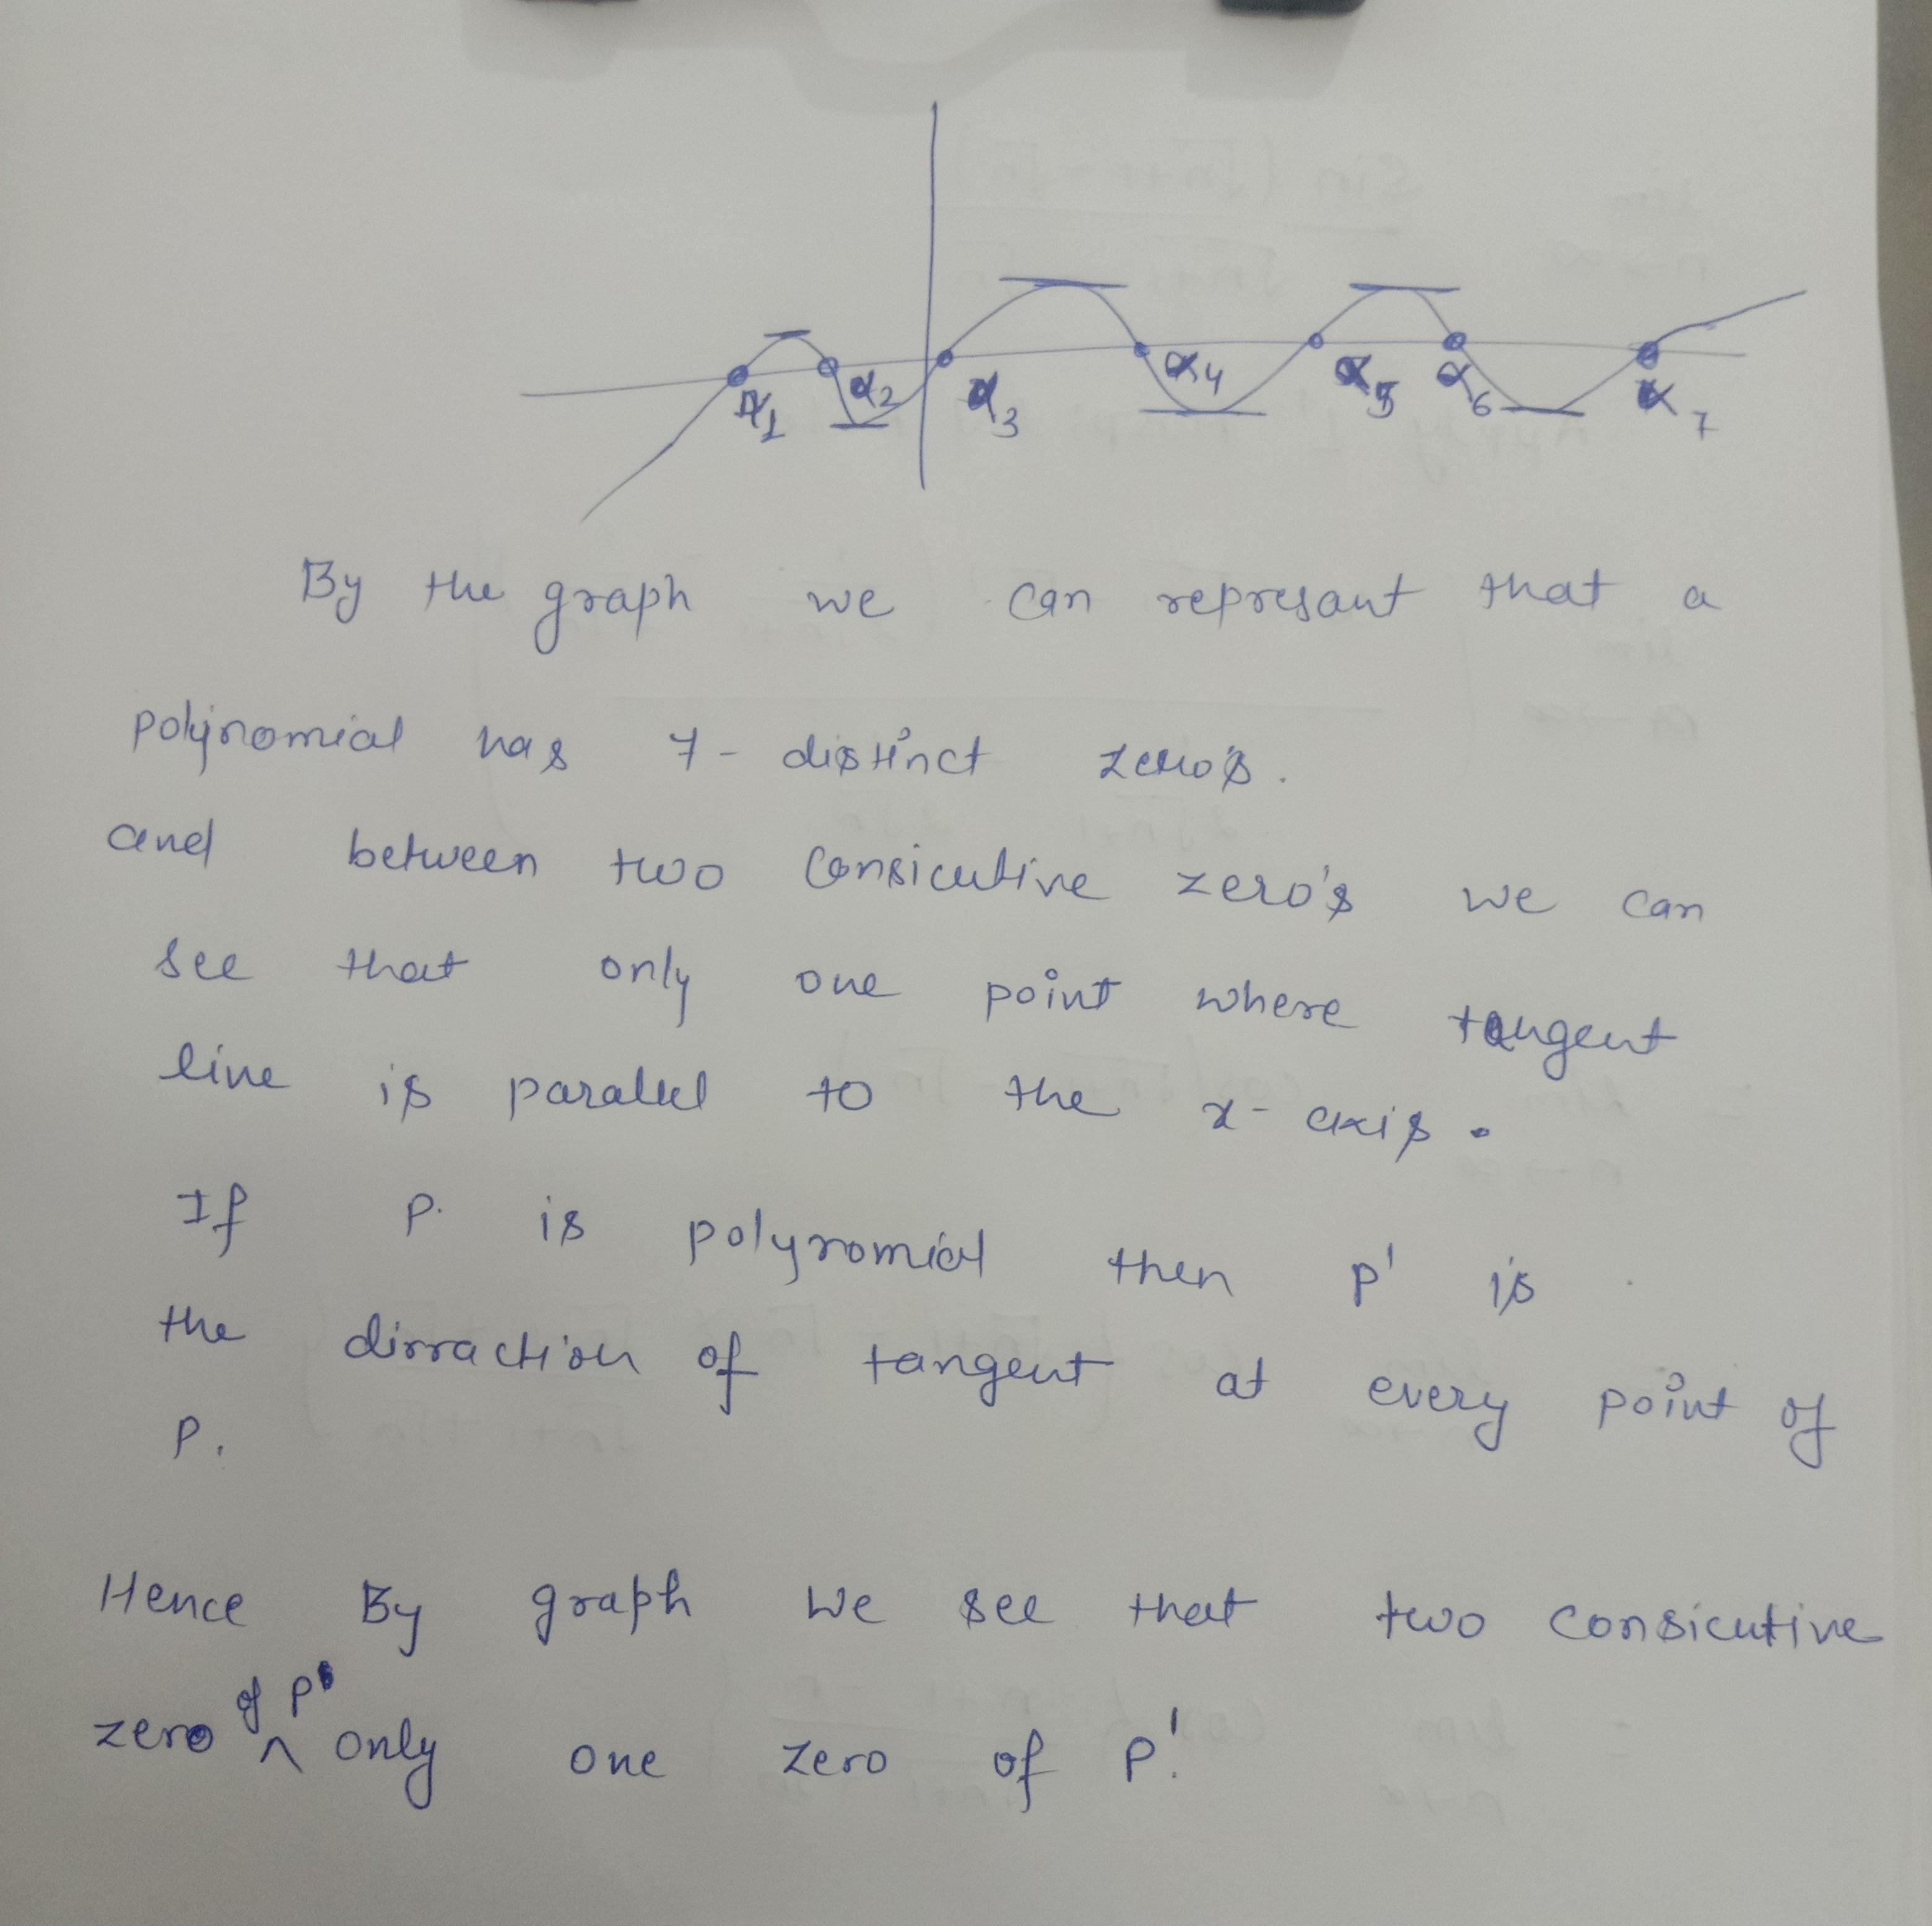 α1 α2 α3 α4 α5 α6 α7
By the graph we can represant that a
polynomial has 7- distinct zero's.
and between two consicutive zero's we can
see that only one point where tangent
line is parallel to the x-axis.
If P. is polynomial then P' is
the dirraction of tangent at every point of
P.
Hence By graph we see that two consicutive
zero of P only one zero of P'.